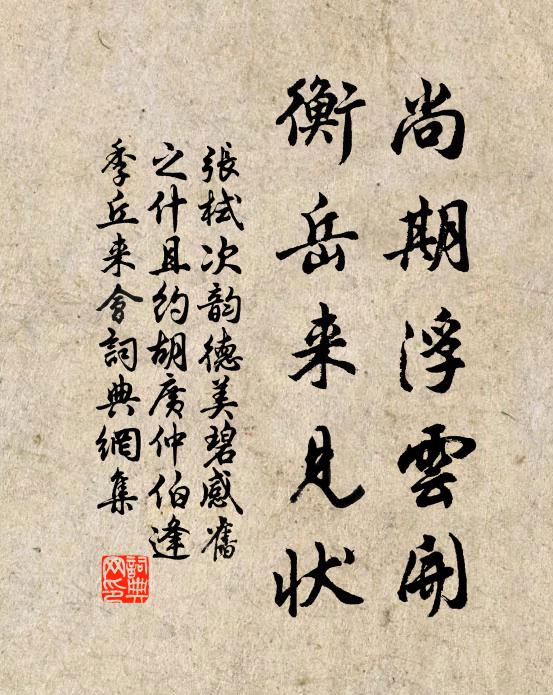 尚期浮雲開
衡岳来見状
張栻次韵德美碧感舊
之什且約胡廣仲伯逢
季丘来會詞典網集
詞典
网印